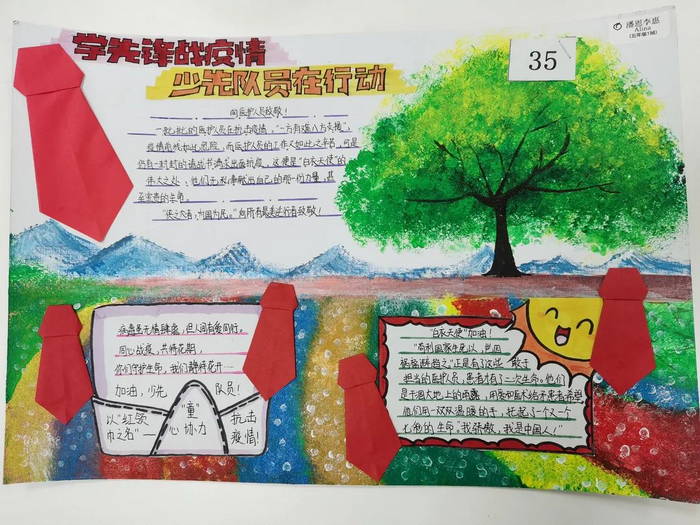 潘思李惠
Alina
(五年级1班)
35
学先锋战疫情
少先队员在行动
向医护人员致敬！
一批批的医护人员在抗击疫情，"一方有难八方支援"，
疫情前线如此危险，而医护人员的工作又如此之辛苦，可是
仍有一封封的请战书满来出国抗疫，这便是"白衣天使"的
伟大之处，他们无私奉献出自己的那一份力量，甚
至宝贵的生命。
"侠之大者，为国为民。"向所有最美逆行者致敬！
病毒虽无情肆虐，但人间有爱同行。
同心战疫，共待花期，
你们守护生命，我们静待花开——
加油，少先队员！
以"红领巾之名"——
"童"心协力
抗击疫情！
"白衣天使"加油！
"苟利国家生死以，岂因
祸福避趋之"正是有了这些敢于
担当的医护员，患者才有了二次生命。他们
是干涸大地上的雨露，用爱和医术给予患者希望
他们用一双双温暖的手，托起了一个又一
个鲜活的生命。"我骄傲，我是中国人！"